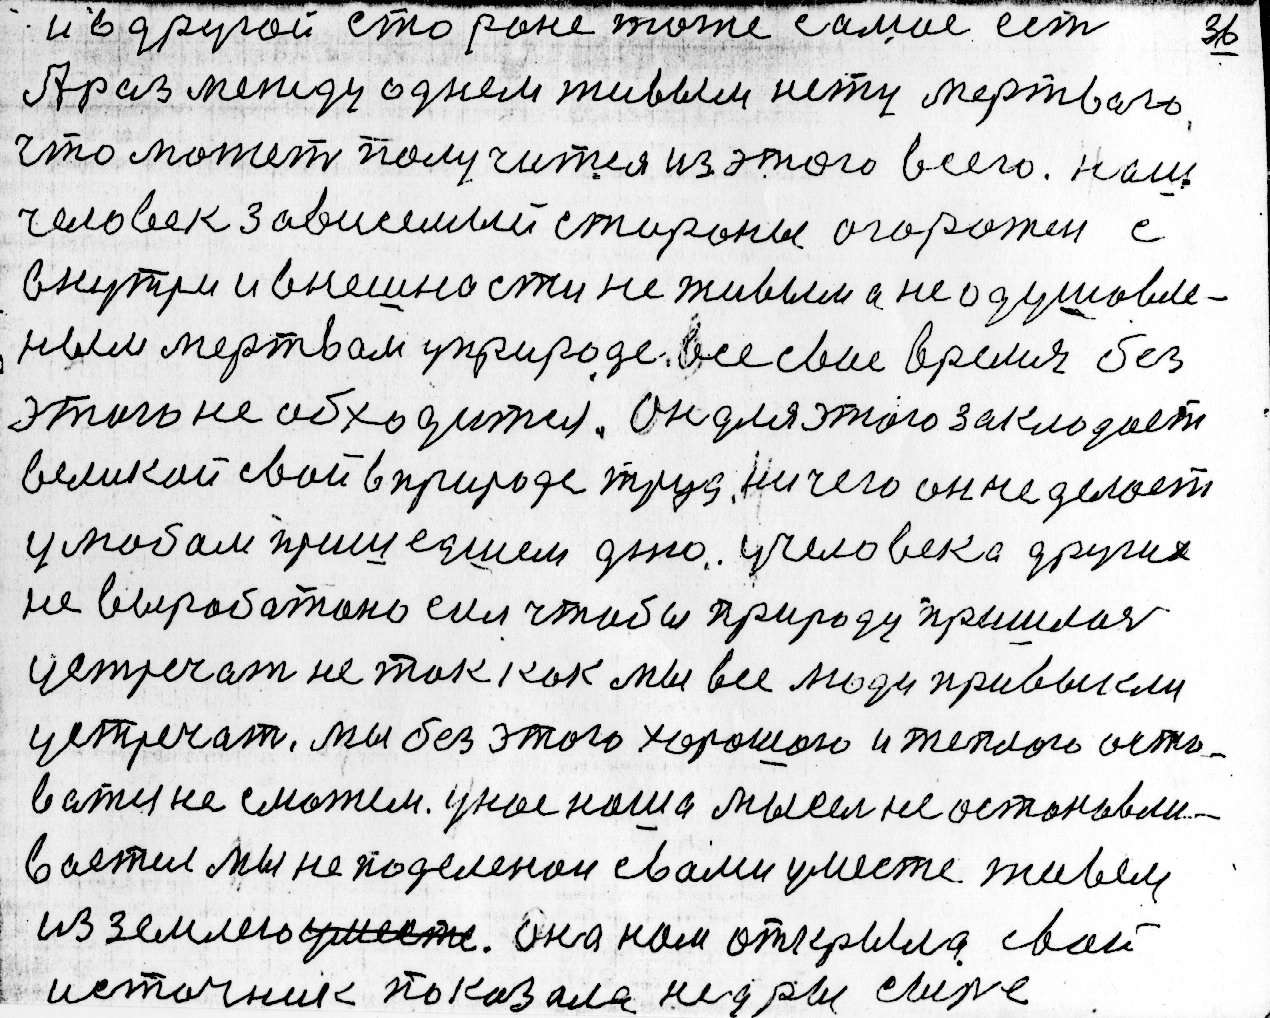 и в другой стороне тоже самое ест 36
А раз между однем живым нету мертваго
что может получится из этого всего. наш
человек зависемый стораны огорожен с
внутри и внешности не живым а не одушовле-
ным мертвам у природе. все свое время без
этого не обходится. Он для этого заклодает
великой свой в природе труд. Ничего он не делает
у любом пришедшем дню. у человека других
не выработоно сил чтобы природу пришлая
устречат не так как мы все люди привыкли
устречат. мы без этого хорошого и теплого оста-
ватся не сможем. у нас наша мысел не остановли-
вается мы не поделеной с вами уместе живем
из землею уместе. она нам открыла свой
источник показала недры свире